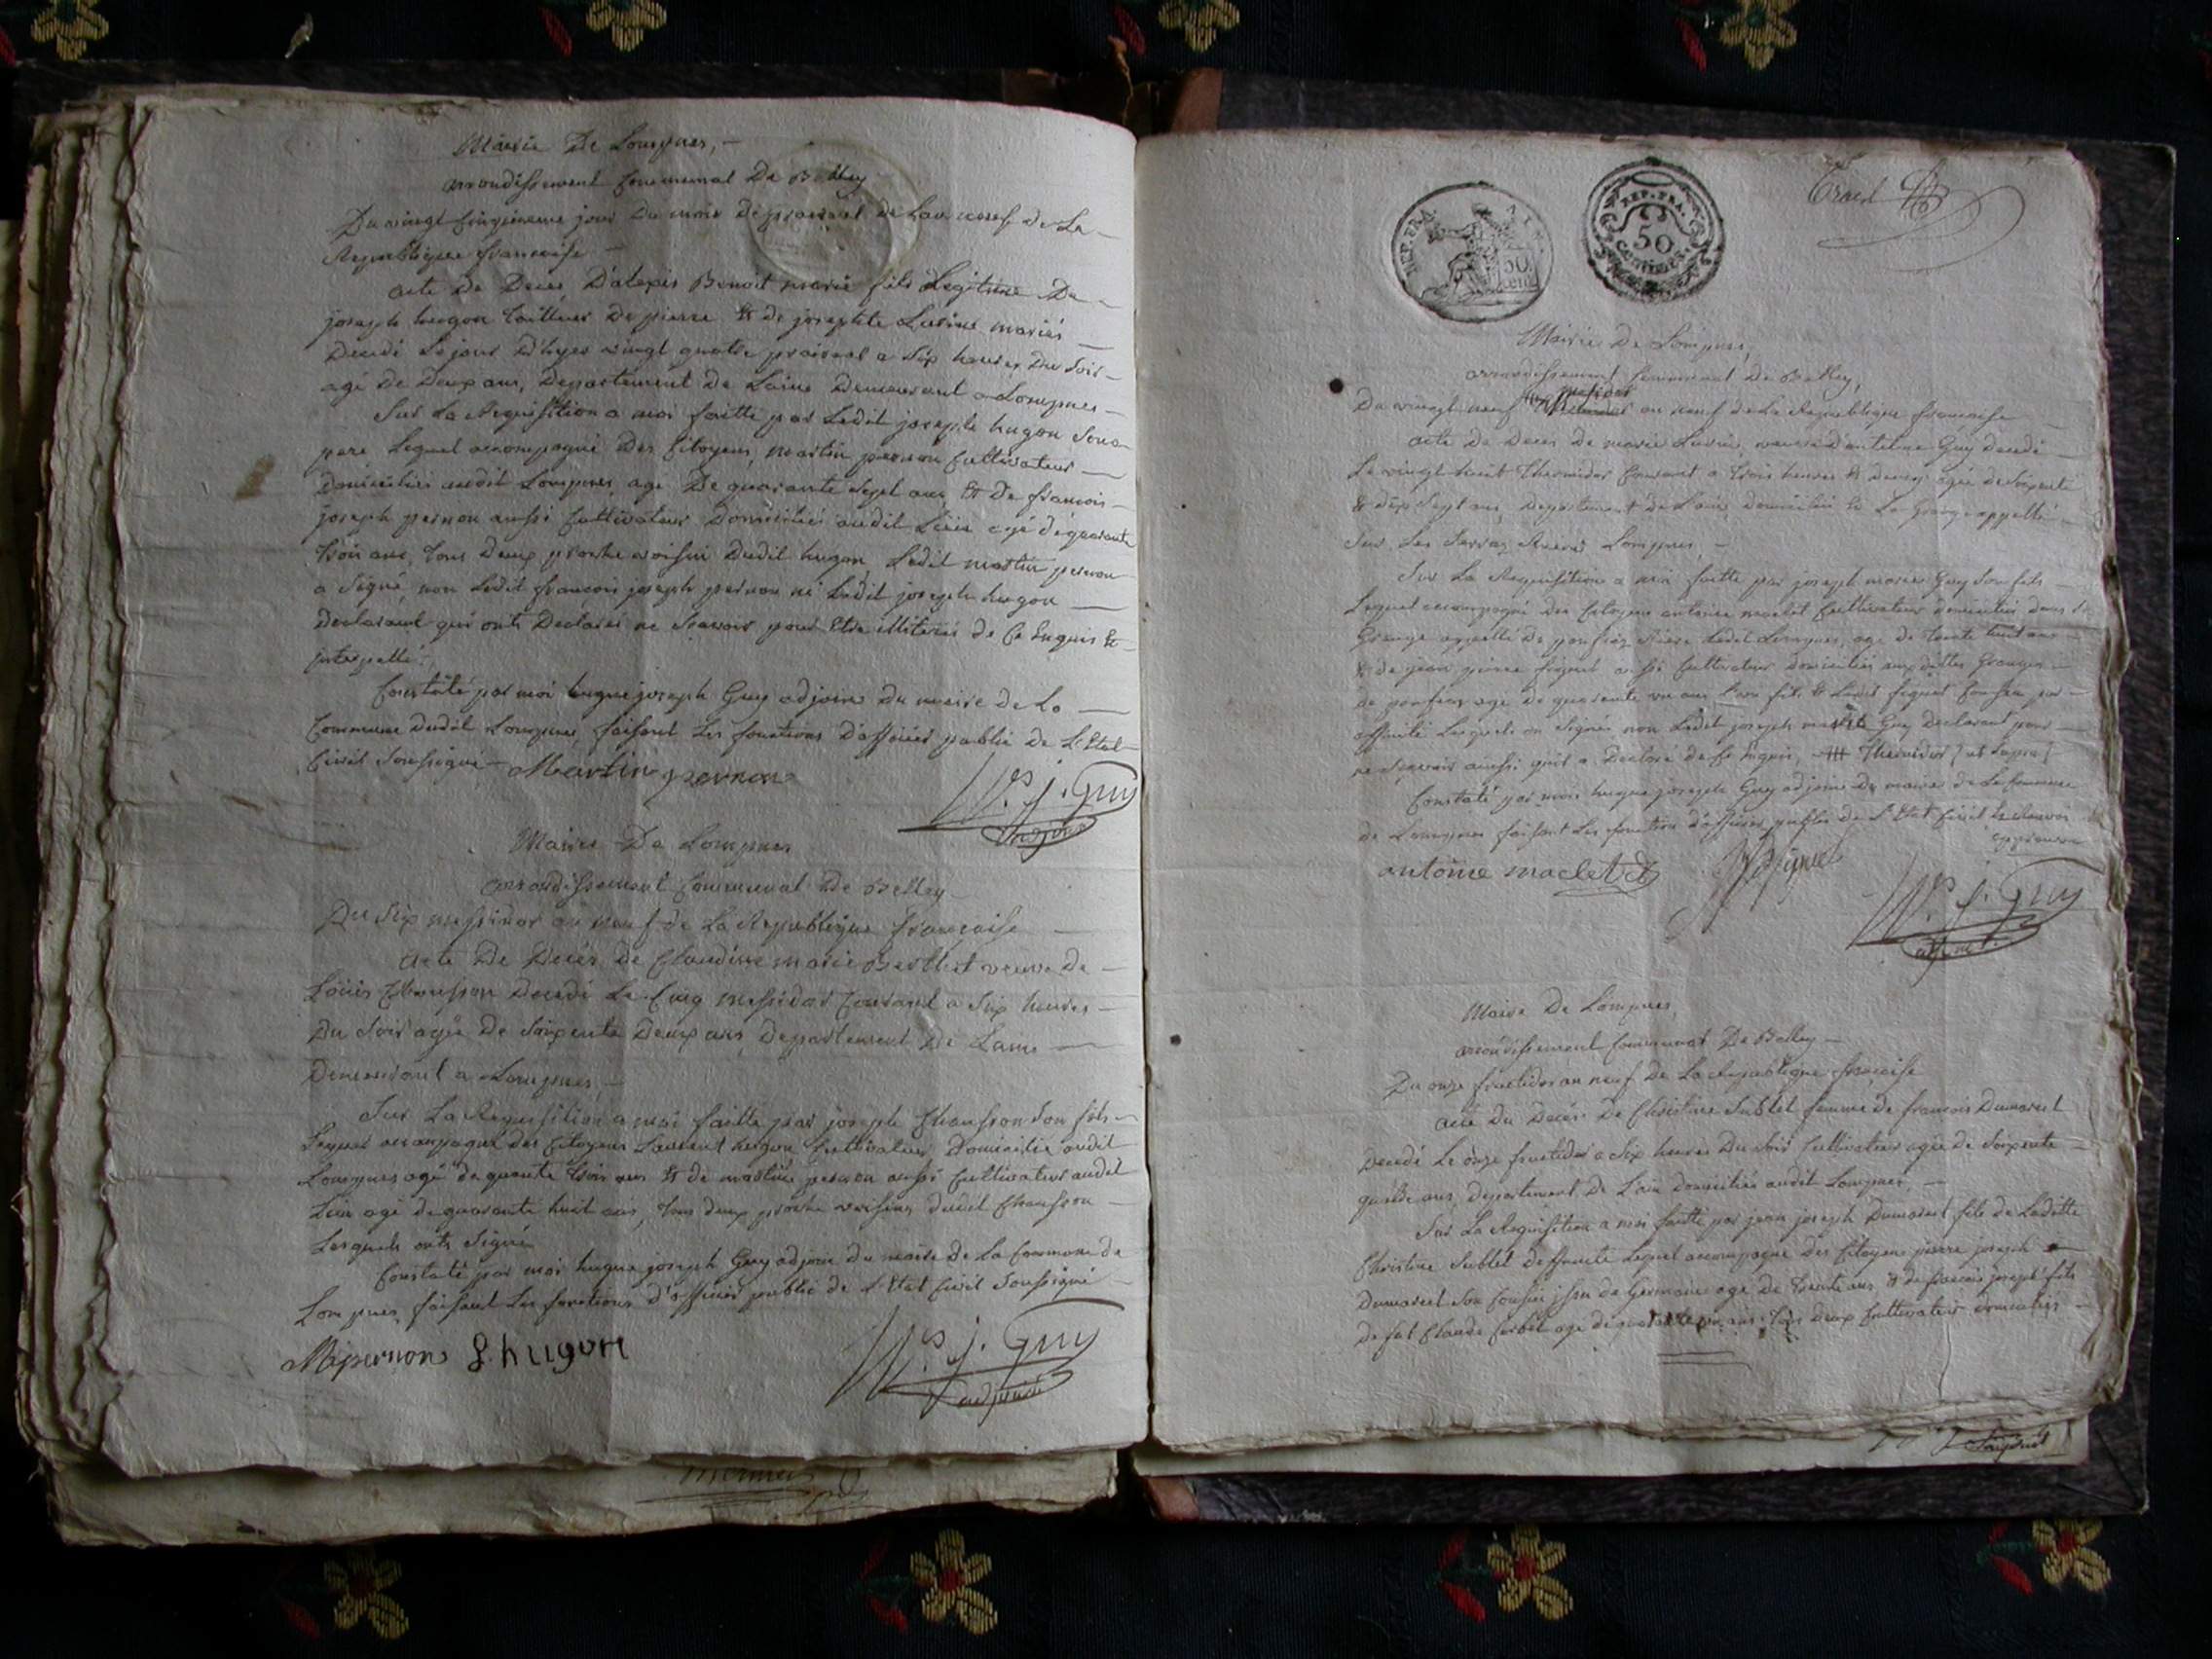 Mairie De Lompnes, -
arrondissement Communal De Belley
Du vingt cinquieme jour du mois de prairial de Lan neuf de La -
Republique francaise -
acte De Decés D'alexis Benoit marie fils Legitime De -
joseph hugon tailleur De pierre & de josephte Lariue mariés -
Decedé Le jour D'hyer vingt quatre prairial a Six heures Du Soir -
agé de Deux ans, Departement de Lain Demeurant a Lompnes -
Sur La Requisition a moi faitte par Ledit joseph hugon Son
pere Lequel accompagné Des Citoyens martin pernon Cultivateur -
Domicilié audit Lompnes, agé De quarante Sept ans & De francois
joseph pernon aussi Cultivateur Domicilié audit Lieu agé de quarante
trois ans, tous Deux proche voisin Dudit hugon, Ledit martin pernon
a Signé, non Ledit francois joseph pernon ni Ledit joseph hugon -
Declarant qui onts Declarés ne Scavoir pour Etre illiterés de Ce Enquis &
interpellé.
Constaté par moi hugue joseph Guy adjoint Du maire de La -
Commune Dudit Lompnes, faisant Les fonctions D'officier public de L'Etat
Civil Soussigné - Martin pernon
H. j. Guy
adjoint
Mairie De Lompnes
arrondissement Communal De Belley
Du Six messidor an neuf de La Republique francaise -
acte De Decés De Claudine marie Berthet veuve de -
Loüis Chausson Decedé Le Cinq messidor Courant a Six heures -
Du Soir agée De Soixente Deux ans, Departement De Lain -
Demeurant a Lompnes, -
Sur La Requisition a moi faitte par joseph Chausson Son fils -
Lequel accompagné des Citoyens Laurent hugon Cultivateur Domicilié audit
Lompnes agé de quarante trois ans & de martin pernon aussi Cultivateur audit
Lieu agé de quarante huit ans, tous deux proche voisins dudit Chausson -
Lesquels onts Signé
Constaté par moi hugue joseph Guy adjoint du maire de La Commune de
Lompnes, faisant Les fonctions d'officier public de L'Etat Civil Soussigné -
M pernon L. hugon
H. j. Guy
adjoint
REP. FRA.
50.
CENT.
REP. FRA.
50
CENTIMES
Mairie De Lompnes,
arrondissement Communal De Belley,
Du vingt neuf an neuf de La Republique francaise -
acte De Decés De marie Lariue, veuve d'antelme Guy Decedé -
Le vingt huit Thermidor Courant a trois heures & demy agée de Soixente
& dix Sept ans, Departement de Lain domicilié La Grange appellé -
Sur Les Lompnes, -
Sur La Requisition a moi faitte par joseph marie Guy Son fils -
Lequel accompagné Des Citoyens antoine maclet Cultivateur domicilié dans la
Grange appellé De Ledit Lompnes, agé de trente huit ans -
& de jean pierre figuet aussi Cultivateur domicilié aux dittes Granges -
de agé de quarente ans & Ledit figuet par -
affinité Lesquels on Signés non Ledit joseph marie Guy Declarant pour
ne Scavoir ainsi qu'il a Declaré de Ce Enquis, Thermidor
Constaté par moi hugue joseph Guy adjoint Du maire de La Commune
de Lompnes faisant Les fonction d'officier public de L'Etat Civil
approuvé
antoine maclet
H. j. Guy
adjoint
Mairie De Lompnes,
arrondissement Communal De Belley -
Du onze fructidor an neuf De La Republique francaise
acte Du Decés De Christine Sublet femme de francois Dumarest
Decedé Le onze fructidor a Six heures Du Soir Cultivateur agée de Soixente -
quatre ans, Departement De Lain domicilié audit Lompnes, -
Sur La Requisition a moi faitte par jean joseph Dumarest fils de Laditte
Christine Sublet deffuncte Lequel accompagné Des Citoyens pierre joseph -
Dumarest Son Cousin issu de Germain agé de trente ans & de francois joseph fils
De fut Claude agé de ans tous deux Cultivateur domiciliés -